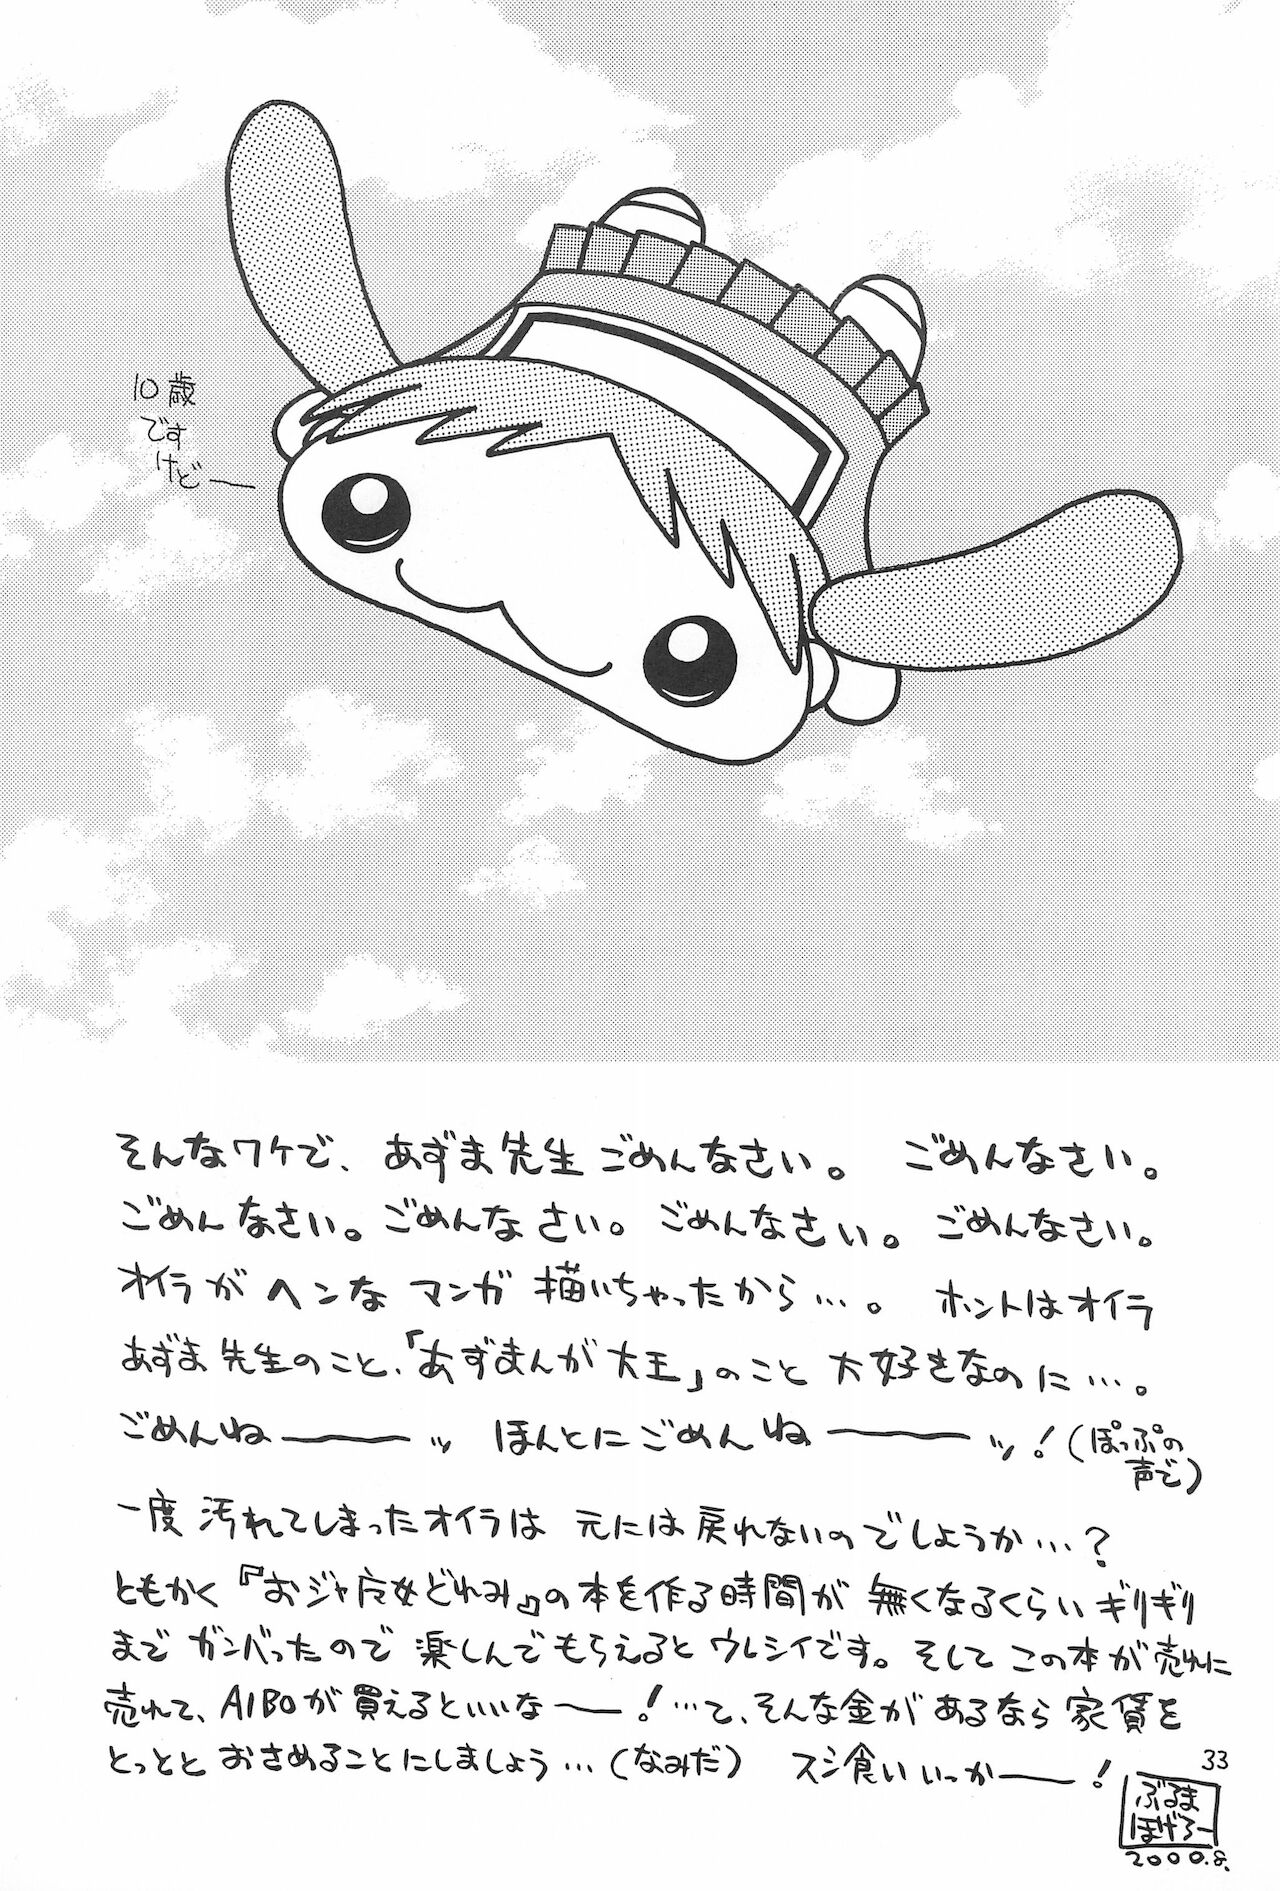 10歳
ですけどー
そんなワケで、あずま先生ごめんなさい。 ごめんなさい。
ごめんなさい。ごめんなさい。ごめんなさい。ごめんなさい。
オイラがヘンなマンガ描いちゃったから…。 ホントはオイラ
あずま先生のこと、「あずまんが大王」のこと大好きなのに…。
ごめんねーーッ ほんとにごめんねーーッ！（ぽっぷの声で）
一度汚れてしまったオイラは元には戻れないのでしょうか…？
ともかく『おジャ魔女どれみ』の本を作る時間が無くなるくらいギリギリ
までガンバったので楽しんでもらえるとウレシイです。そしてこの本が売れに
売れて、AIBOが買えるといいなー！…て、そんな金があるなら家賃を
とっととおさめることにしましょう…（なみだ） スシ食いいっかー！
33
ぶるま
ほげろー
2000.8.